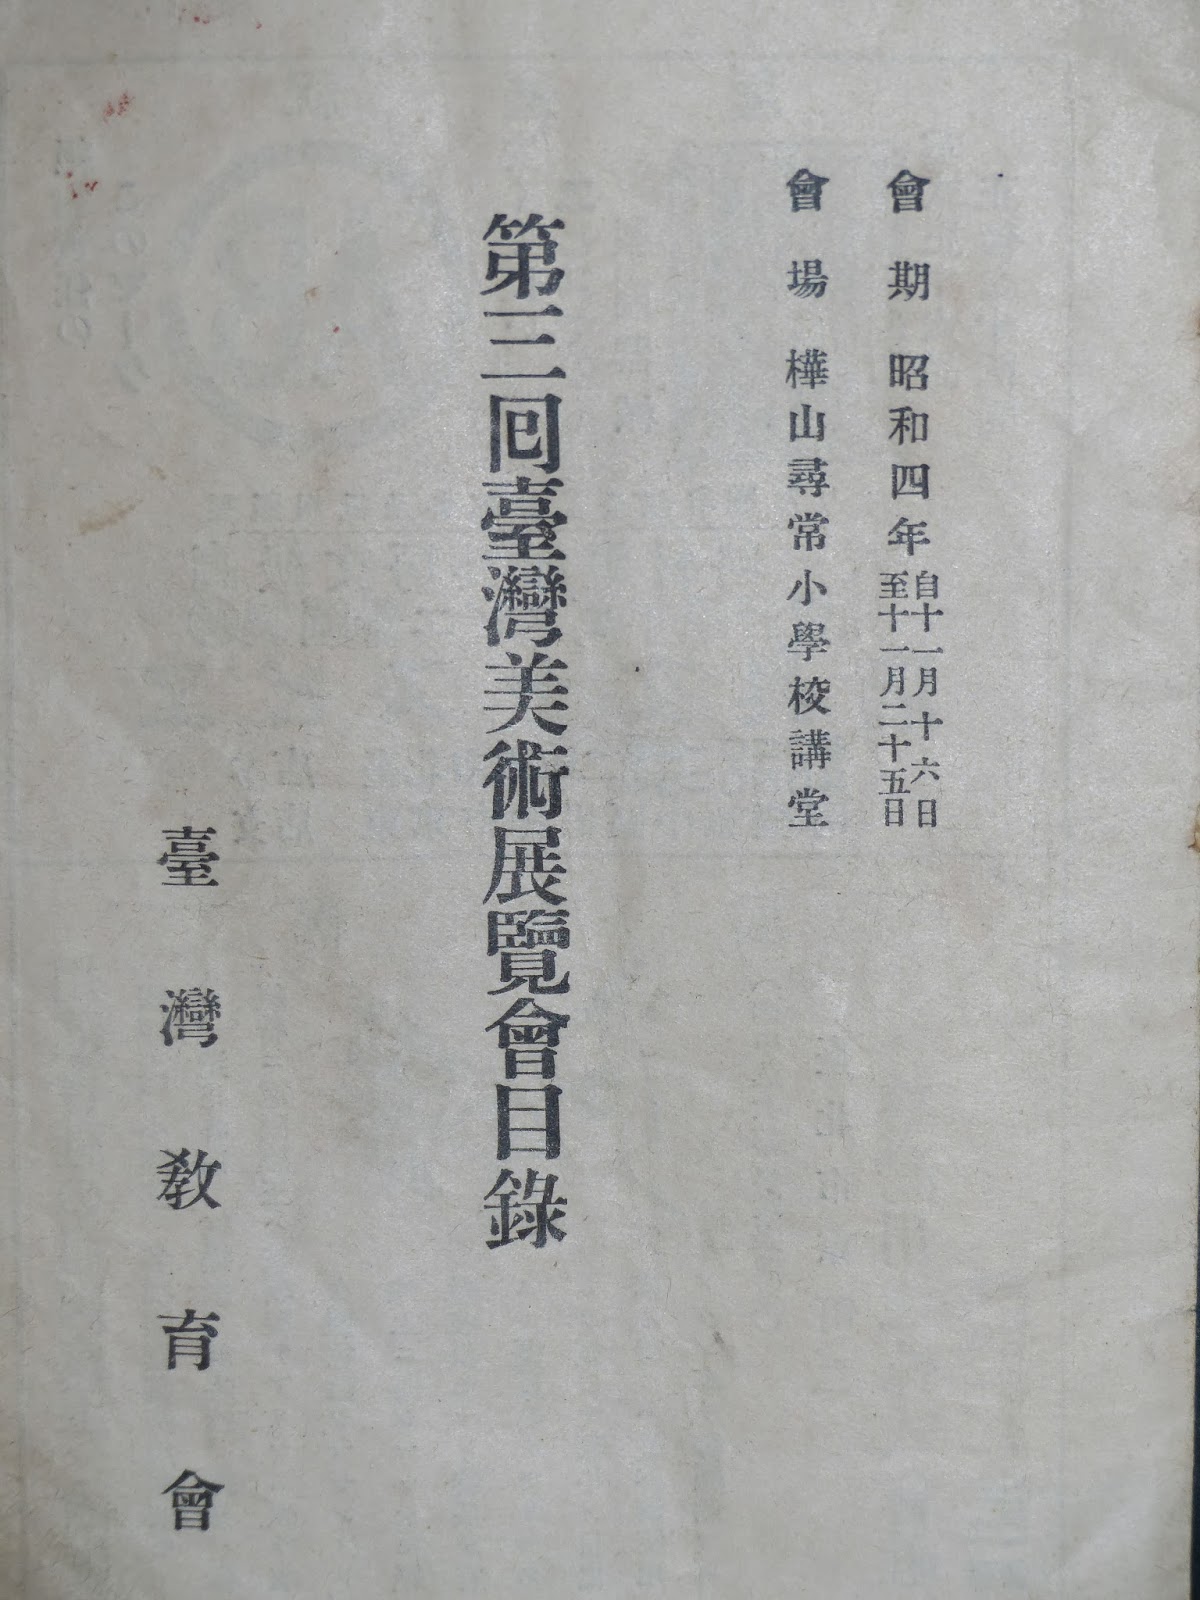 會期 昭和四年 自十一月十六日 至十一月二十五日
會場 樺山尋常小學校講堂
第三回臺灣美術展覽會目錄
臺灣敎育會